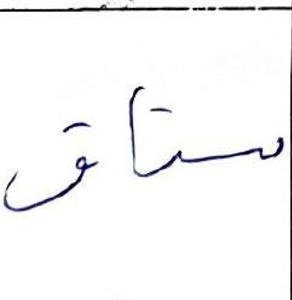 مستاق